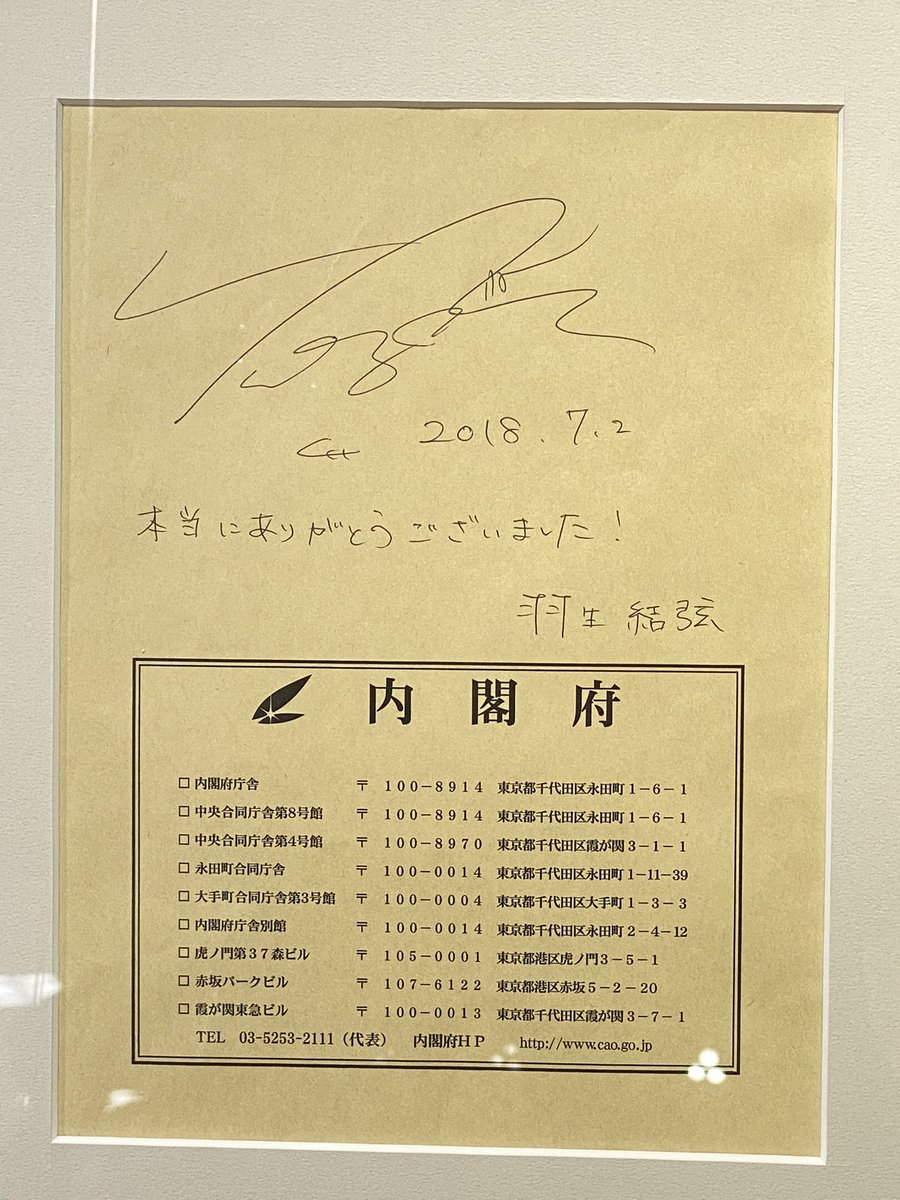 2018.7.2
本当にありがとうございました!
羽生 結弦
内閣府
□ 内閣府庁舎 〒 100-8914 東京都千代田区永田町1-6-1
□ 中央合同庁舎第8号館 〒 100-8914 東京都千代田区永田町1-6-1
□ 中央合同庁舎第4号館 〒 100-8970 東京都千代田区霞が関3-1-1
□ 永田町合同庁舎 〒 100-0014 東京都千代田区永田町1-11-39
□ 大手町合同庁舎第3号館 〒 100-0004 東京都千代田区大手町1-3-3
□ 内閣府庁舎別館 〒 100-0014 東京都千代田区永田町2-4-12
□ 虎ノ門第37森ビル 〒 105-0001 東京都港区虎ノ門3-5-1
□ 赤坂パークビル 〒 107-6122 東京都港区赤坂5-2-20
□ 霞が関東急ビル 〒 100-0013 東京都千代田区霞が関3-7-1
TEL 03-5253-2111(代表) 内閣府HP http://www.cao.go.jp